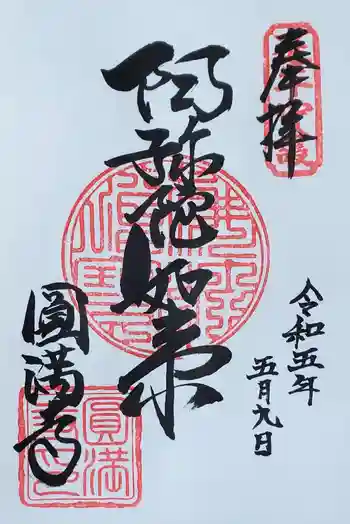 奉拝
令和五年
五月九日
阿弥陀如来
圓満寺
圓満